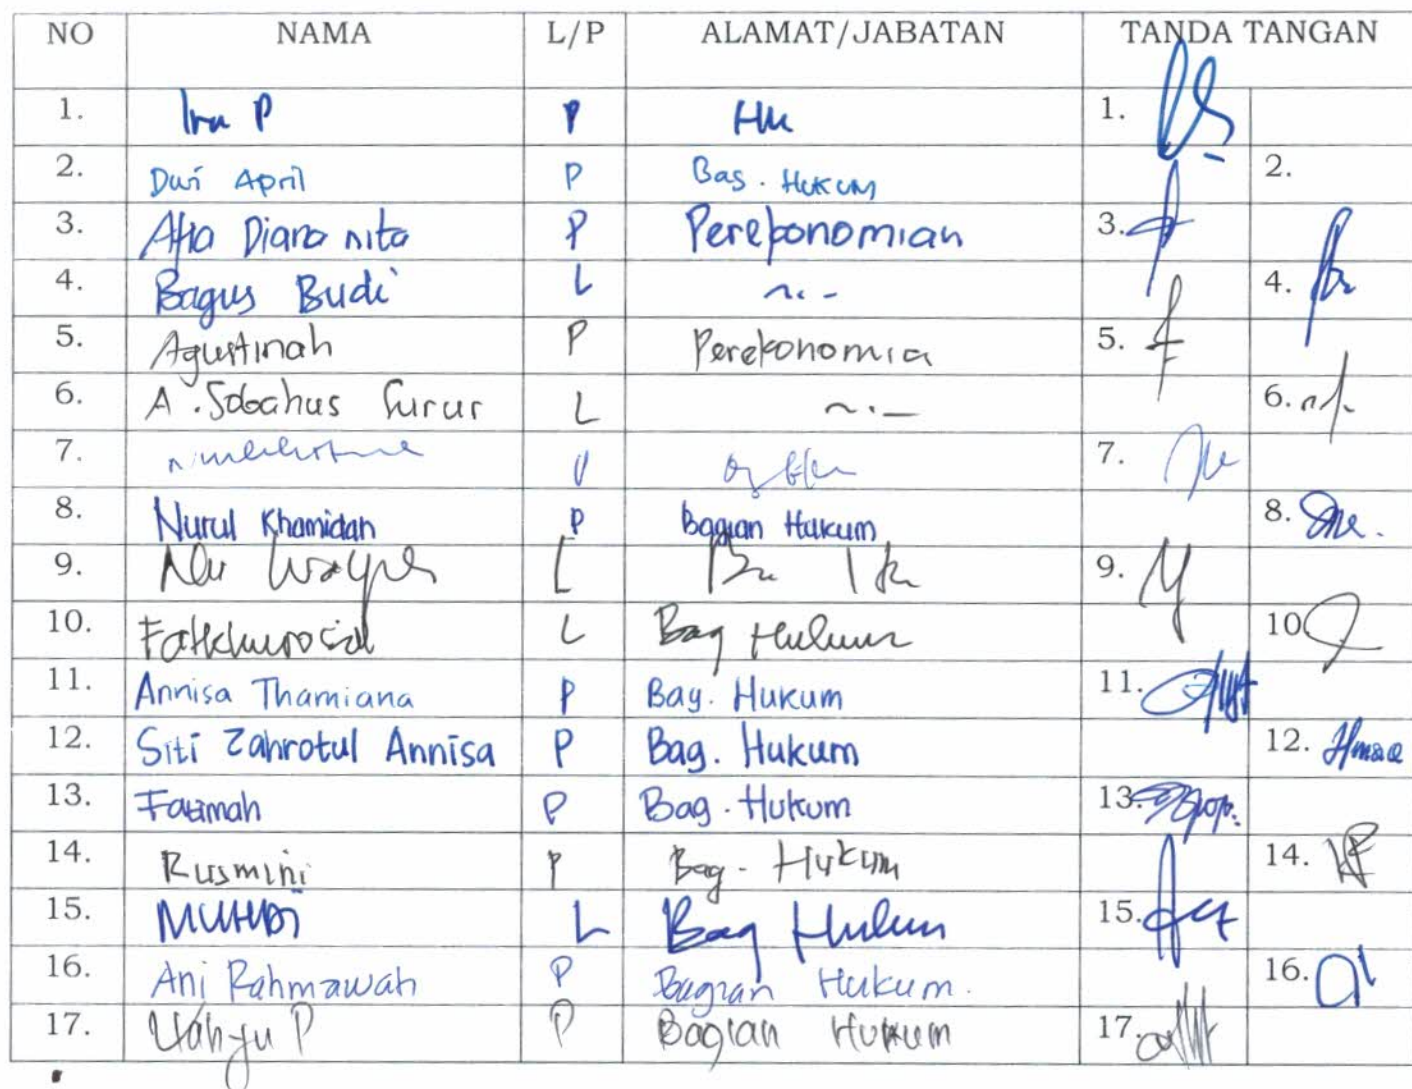 NO NAMA L/P ALAMAT/JABATAN TANDA TANGAN
1. Ira P P Huk 1.
2. Dwi April P Bag. Hukum 2.
3. Afia Diana nita P Perekonomian 3.
4. Bagus Budi L ~.- 4.
5. Agustinah P Perekonomia 5.
6. A. Sobahus Surur L ~.- 6.
7. 7.
8. Nurul Khamidah P Bagian Hukum 8.
9. L 9.
10. L Bag Hukum 10.
11. Annisa Thamiana P Bag. Hukum 11.
12. Siti Zahrotul Annisa P Bag. Hukum 12.
13. Fatimah P Bag. Hukum 13.
14. Rusmini P Bag. Hukum 14.
15. MUHDI L Bag Hukum 15.
16. Ani Rahmawati P Bagian Hukum. 16.
17. Wahyu P P Bagian Hukum 17.